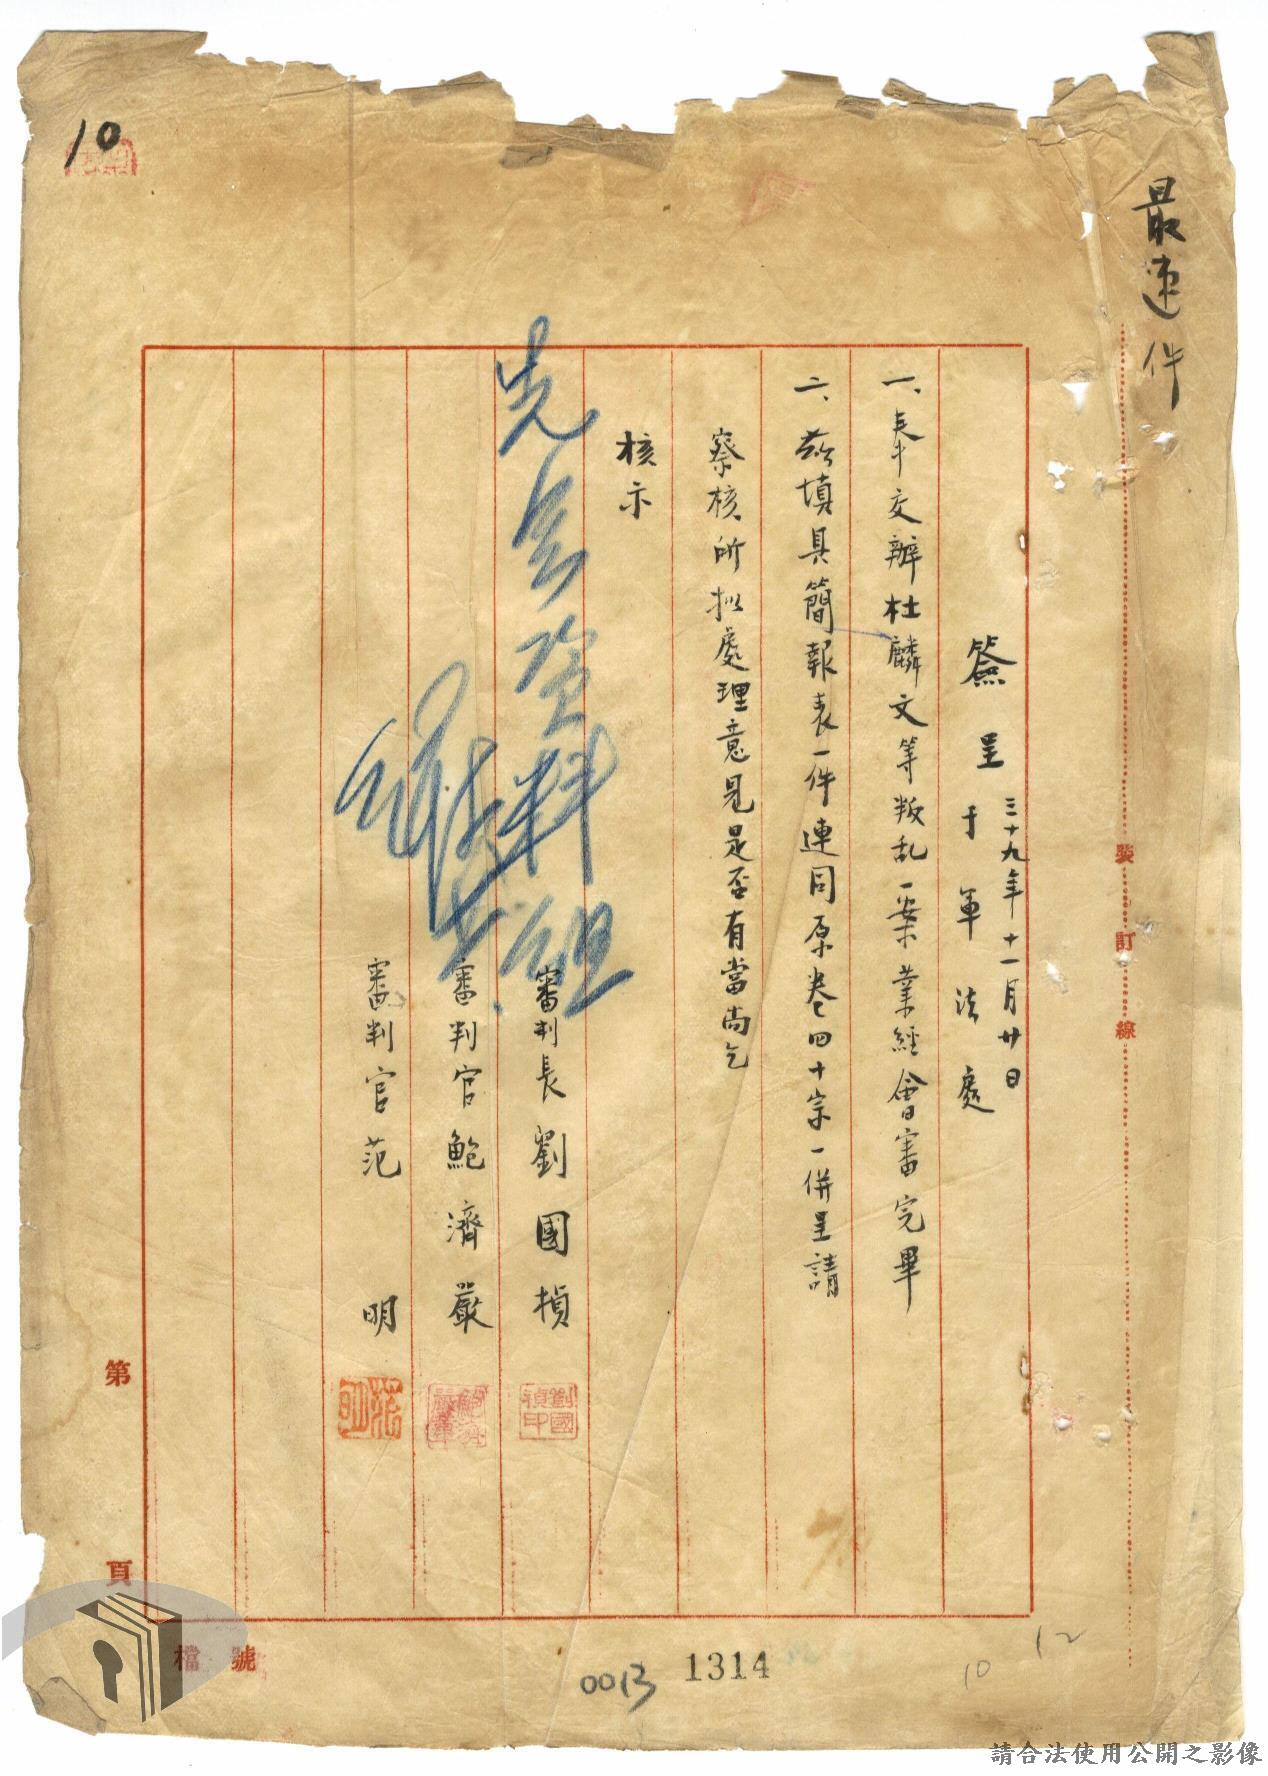 最速件
簽呈 三十九年十一月廿日
于軍法處
一、奉交辦杜麟文等叛乱一案業經會審完畢
二、茲填具簡報表一件連同原卷四十宗一併呈請
察核所拟處理意見是否有當尚乞
核示
先會資料組
審判長劉國楨
審判官鮑濟嚴
審判官范明
劉國楨印
裝訂線
第頁
檔號
10
0013
1314
10
12
請合法使用公開之影像